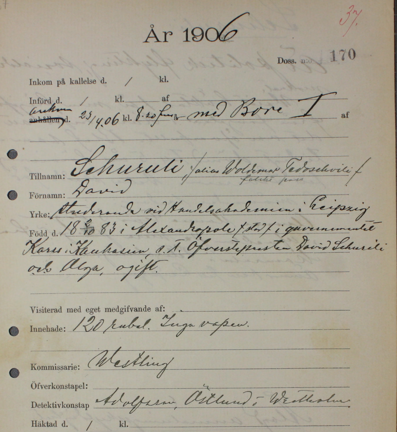 37.
År 1906
Doss. n:o 170
Inkom på kallelse d. / kl.
Införd d. / kl. af
ankom
anhållen d. 23/4.06 kl. 8.20 fm. med Bore I af
Tillnamn: Schuruli / alias Woldemar
falskt pass
Förnamn: David
Yrke: Studerande vid Handelsakademien i Leipzig
Född d. 18 83 i Alexandropole / stad / i guvernementet
Kars i Kaukasien, s. t. Öfverstepresten David Schuruli
och Olga, ogift.
Visiterad med eget medgifvande af:
Innehade: 120 rubel. Inga vapen.
Kommissarie: Westling
Öfverkonstapel:
Detektivkonstap Adolfsson, Östlund, Westholm
Häktad d. / kl.